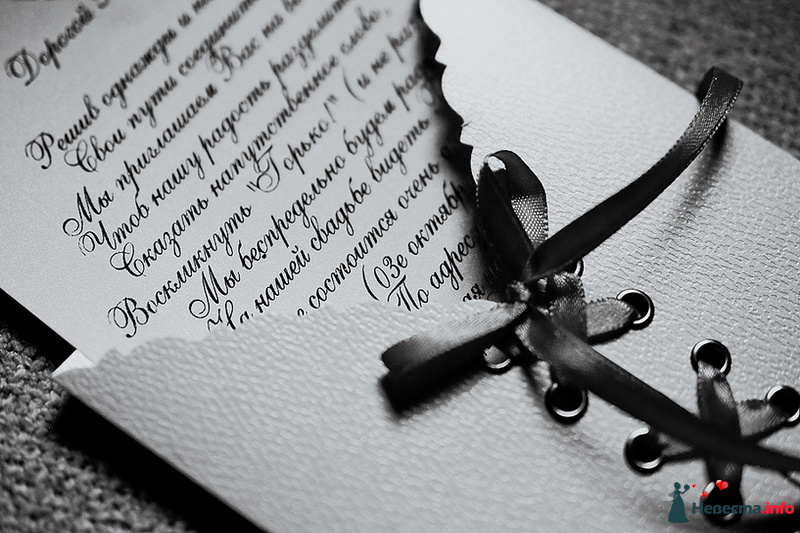 Дорогой
Решив однажды и на
Свои пути соединить
Мы приглашаем Вас на
Чтоб нашу радость разделить
Сказать напутственное слово,
Воскликнуть "Горько!" (и не раз
Мы беспредельно будем рады
На нашей свадьбе видеть
состоится очень
(03е октября
По адресу
Невеста.info